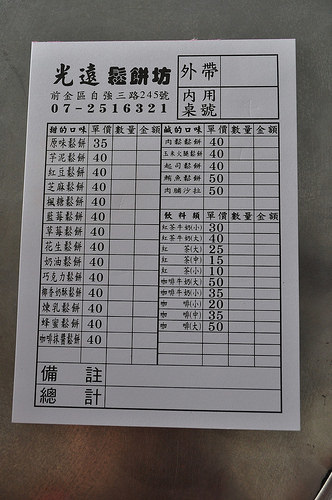 光遠 鬆餅坊
前金區自強三路245號
07-2516321
外帶
內用
桌號
甜的口味 單價 數量 金額
原味鬆餅 35
芋泥鬆餅 40
紅豆鬆餅 40
芝麻鬆餅 40
楓糖鬆餅 40
藍莓鬆餅 40
草莓鬆餅 40
花生鬆餅 40
奶油鬆餅 40
巧克力鬆餅 40
椰香奶酥鬆餅 40
煉乳鬆餅 40
蜂蜜鬆餅 40
咖啡抹醬鬆餅 40
鹹的口味 單價 數量 金額
肉鬆鬆餅 40
玉米火腿鬆餅 40
起司鬆餅 40
鮪魚鬆餅 50
肉脯沙拉 50
飲料類 單價 數量 金額
紅茶牛奶(小) 30
紅茶牛奶(大) 40
紅 茶(大) 25
紅 茶(中) 15
紅 茶(小) 10
咖啡牛奶(大) 50
咖啡牛奶(小) 35
咖 啡(小) 20
咖 啡(中) 35
咖 啡(大) 50
備 註
總 計